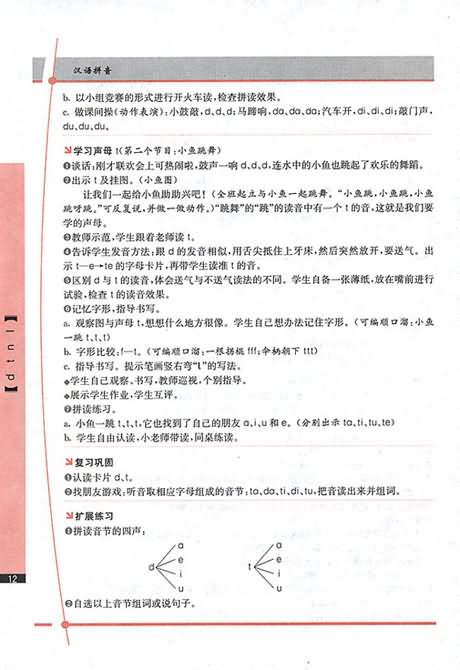 汉语拼音
b. 以小组竞赛的形式进行开火车读,检查拼读效果。
c. 做课间操(动作表演):小鼓敲,d、d、d;马蹄响,da、da、da;汽车开,di、di、di;敲门声,
du、du、du。
学习声母 t(第二个节目:小鱼跳舞)
❶谈话:刚才联欢会上可热闹啦,鼓声一响 d、d、d,连水中的小鱼也跳起了欢乐的舞蹈。
❷出示 t 及挂图。(小鱼图)
让我们一起给小鱼助助兴吧!(全班起立与小鱼一起跳舞。“小鱼跳,小鱼跳,小鱼
跳呀跳。”可反复说,并做一做动作。)“跳舞”的“跳”的读音中有一个 t 的音,这就是我们要
学的声母。
❸教师示范,学生跟着老师读 t。
❹告诉学生发音方法:跟 d 的发音相似,用舌尖抵住上牙床,然后突然放开,要送气。出
示 t—e→te 的字母卡片,再带学生读准 t 的音。
❺区别 d 与 t 的读音,体会送气与不送气读法的不同。学生自备一张薄纸,放在嘴前进行
试验,检查 t 的读音效果。
❻记忆字形,指导书写。
a. 观察图与声母 t,想想什么地方很像。学生自己想办法记住字形。(可编顺口溜:小鱼
一跳 t、t、t)
b. 字形比较:f—t。(可编顺口溜:一根拐棍 fff;伞柄朝下 ttt)
c. 指导书写。提示笔画竖右弯“t”的写法。
◆学生自己观察、书写,教师巡视,个别指导。
◆展示学生作业,学生互评。
❼拼读练习。
a. 小鱼一跳 t、t、t,它也找到了自己的朋友 a、i、u 和 e。(分别出示 ta、ti、tu、te)
b. 学生自由认读,小老师带读,同桌练读。
复习巩固
❶认读卡片 d、t。
❷找朋友游戏:听音取相应字母组成的音节:ta、da、ti、di、tu,把音读出来并组词。
扩展练习
❶拼读音节的四声:
d a e i u
t a e i u
❷自选以上音节组词或说句子。
【d t n l】
12